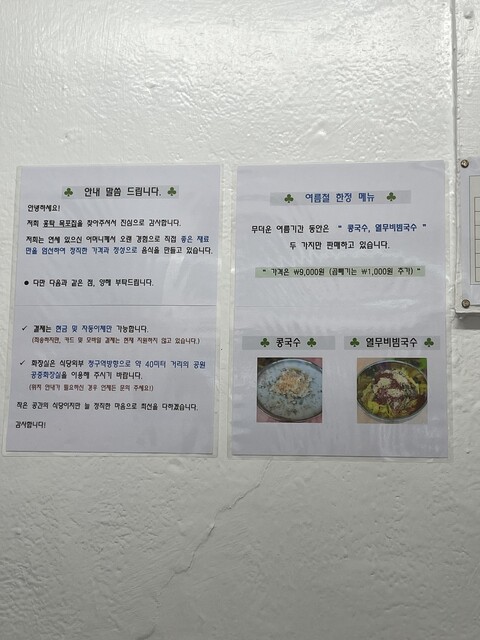 안내 말씀 드립니다.
안녕하세요!
저희 홍탁 목포집을 찾아주셔서 진심으로 감사합니다.
저희는 연세 있으신 어머니께서 오랜 경험으로 직접 좋은 재료
만을 엄선하여 정직한 가격과 정성으로 음식을 만들고 있습니다.
● 다만 다음과 같은 점, 양해 부탁드립니다.
✓ 결제는 현금 및 자동이체만 가능합니다.
(죄송하지만, 카드 및 모바일 결제는 현재 지원하지 않고 있습니다.)
✓ 화장실은 식당외부 청구역방향으로 약 40미터 거리의 공원
공중화장실을 이용해 주시기 바랍니다.
(위치 안내가 필요하신 경우 언제든 문의 주세요!)
작은 공간의 식당이지만 늘 정직한 마음으로 최선을 다하겠습니다.
감사합니다!
여름철 한정 메뉴
무더운 여름기간 동안은 " 콩국수, 열무비빔국수 "
두 가지만 판매하고 있습니다.
" 가격은 ₩9,000원 (곱빼기는 ₩1,000원 추가) "
콩국수
열무비빔국수